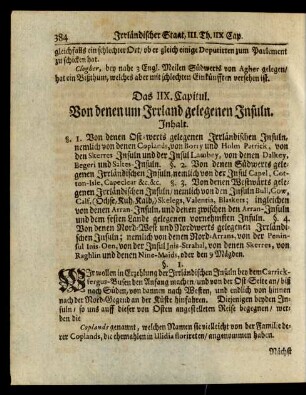 384 Irrländischer Staat, III. Th. IIX Cap.
gleichfalls ein schlechter Ort, ob er gleich einige Deputirten zum Parlament
zu schicken hat.
Clogher, bey nahe 3 Engl. Meilen Südwerts von Agher gelegen/
hat ein Bißthum, welches aber mit schlechten Einkünfften versehen ist.
Das IIX. Capitul.
Von denen um Irrland gelegenen Insuln.
Inhalt.
§. 1. Von denen Ost-werts gelegenen Irrländischen Insuln,
nemlich von denen Coplands, von Bory und Holen Patrick, von
den Skerres Insuln und der Insul Lambey, von denen Dalkey,
Bageri und Saltes-Insuln. §. 2. Von denen Südwerts gele-
genen Irrländischen Insuln, nemlich von der Insul Capel, Cor-
ton-Isle, Capeclear &c. &c. §. 3. Von denen Westwerts gele-
genen Irrländischen Insuln; nemlich von den Insuln Bull, Cow,
Calf, (Ochse, Kuh, Kalb,) Skelegs, Valentia, Blaskers; ingleichen
von denen Arran-Insuln, und denen zwischen den Arran-Insuln
und dem festen Lande gelegenen vornehmsten Insuln. §. 4.
Von denen Nord-West und Nordwerts gelegenen Irrländi-
schen Insuln; nemlich von denen Nord-Arrans, von der Penin-
sul Inis-Oen, von der Insul Inis-Strahul, von denen Skerres, von
Raghlin und denen Nine-Maids, oder den 9 Mägden.
§. 1.
Wir wollen in Erzehlung der Irrländischen Insuln bey dem Carrick-
fergus-Busen den Anfang machen, und von der Ost-Seite an/ biß
nach Süden, von dannen nach Westen, und endlich von hinnen
nach der Nord-Gegend an der Küste hinfahren. Diejenigen beyden In-
suln/ so uns auff dieser von Osten angestelleten Reise begegnen/ wer-
den die
Coplands genannt, welchen Namen sie vielleicht von der Familie de-
rer Coplands, die ehemahlen in Ulidia floriret en/ angenommen haben.
Nächst